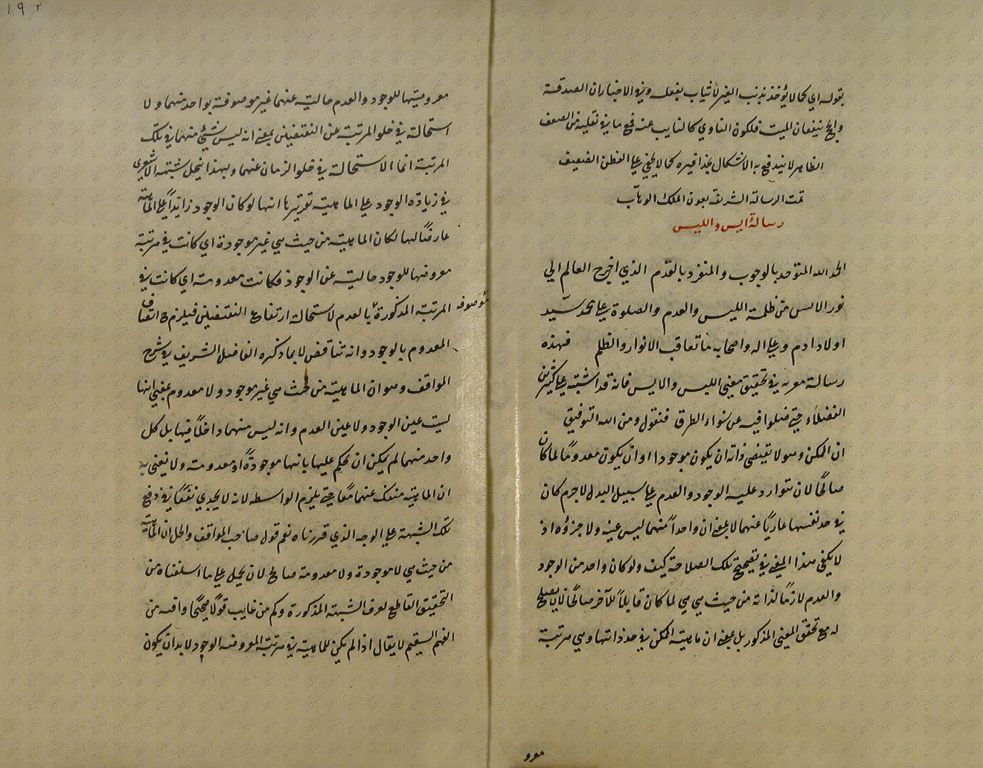 بقوله اي كما لا يؤخذ بذنب الغير لا يثاب بفعله وفي الاخبار ان الصدقة
والحج ينفعان الميت فلكون الناوي كالنايب عنه فمع ما في تعليله من الضعف
الظاهر لا يندفع به الاشكال بحذافيره كما لا يخفى على الفطن
تمت الرسالة الشريفة بعون الملك الوهاب
رسالة ايس والليس
الحمد لله المتوحد بالوجوب والمنفرد بالقدم الذي اخرج العالم الى
نور الايس من ظلمة الليس والعدم والصلوة على محمد سيد
اولاد ادم وعلى اله واصحابه ما تعاقب الانوار والظلم فهذه
رسالة معمولة في تحقيق معنى الليس والايس فانه قد اشتبه على كثير من
الفضلاء حتى ضلوا فيه عن سواء الطرق فنقول ومن الله التوفيق
ان الممكن وهو لا يقتضي ذاته ان يكون موجودا او ان يكون معدوما لما كان
صالحا لان يتوارد عليه الوجود والعدم على سبيل البدل لا جرم كان
في حد نفسها عاريا عنهما لا بمعنى ان واحدا منهما ليس عينه ولا جزؤه اذ
لا يكفي هذا المعنى في تصحيح تلك الصلاحة كيف ولو كان واحد من الوجود
والعدم لازما لذاته من حيث هي هي لما كان قابلا للآخر صالحا لان يعرض
له مع تحقق المعنى المذكور بل بمعنى ان ماهية الممكن في حد ذاتها وهي مرتبة
معرو
١٩٢
معروضيتها للوجود والعدم خالية عنهما غير موصوفة بواحد منهما ولا
استحالة في خلو المرتبة عن النقيضين بمعنى انه ليس شيء منهما في تلك
المرتبة انما الاستحالة في خلو الزمان عنهما وبهذا ينحل شبهة الاشعري
في زيادة الوجود على الماهية تقريرها انها لو كان الوجود زائدا على الماهية
عارضا لها لكان الماهية من حيث هي غير موجودة اي كانت في مرتبة
معروضها للوجود خالية عن الوجود فكانت معدومة اي كانت في
موصوفه
المرتبة المذكورة بالعدم لاستحالة ارتفاع النقيضين فيلزم ح اتصاف
المعدوم بالوجود وانه تناقض لا بما ذكره الفاضل الشريف في شرح
المواقف وهو ان الماهية من حيث هي غير موجود ولا معدوم بمعنى انها
ليست عين الوجود ولا عين العدم وانه ليس منهما داخلا فيها بل كل
واحد منها لم يكن ان يحكم عليها بانها موجودة او معدومة ولا نعني به
ان الماهية منفكة عنهما معا حتى يلزم الواسطة لانه لا يجدي نفعا في دفع
تلك الشبهة على الوجه الذي قررناه نعم قول صاحب المواقف والحل ان الماهية
من حيث هي لا موجودة ولا معدومة صالح لان يحمل على ما اسلفناه من
التحقيق القاطع لعرق الشبهة المذكورة وكم من عايب قولا صحيحا وآفته من
الفهم السقيم لا يقال اذا لم يكن للماهية في مرتبة المعروضة الوجود لا بد ان يكون